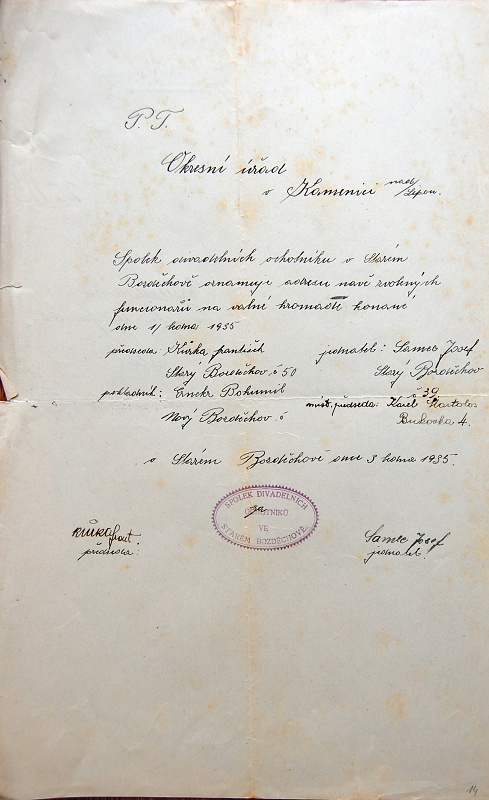 P. T.
Okresní úřad
v Kamenici nad/Lipou.
Spolek divadelních ochotníku v Starém
Bozděchově oznamuje adresu nově zvolených
funcionářů na valní hromadě konané
dne 1/ ledna 1935
předseda: Kůrka František
Starý Bozděchov č 50
jednatel: Samec Josef
Starý Bozděchov
č 39
pokladník: Bohumil
Nový Bozděchov č
míst. předseda: Karel
Bukovka 4.
v Starém Bozděchově dne 3 ledna 1935.
SPOLEK DIVADELNÍCH
OCHOTNÍKŮ
za
VE
STARÉM BOZDĚCHOVĚ
Kůrka Frant
předseda:
Samec Josef
jednatel.
14